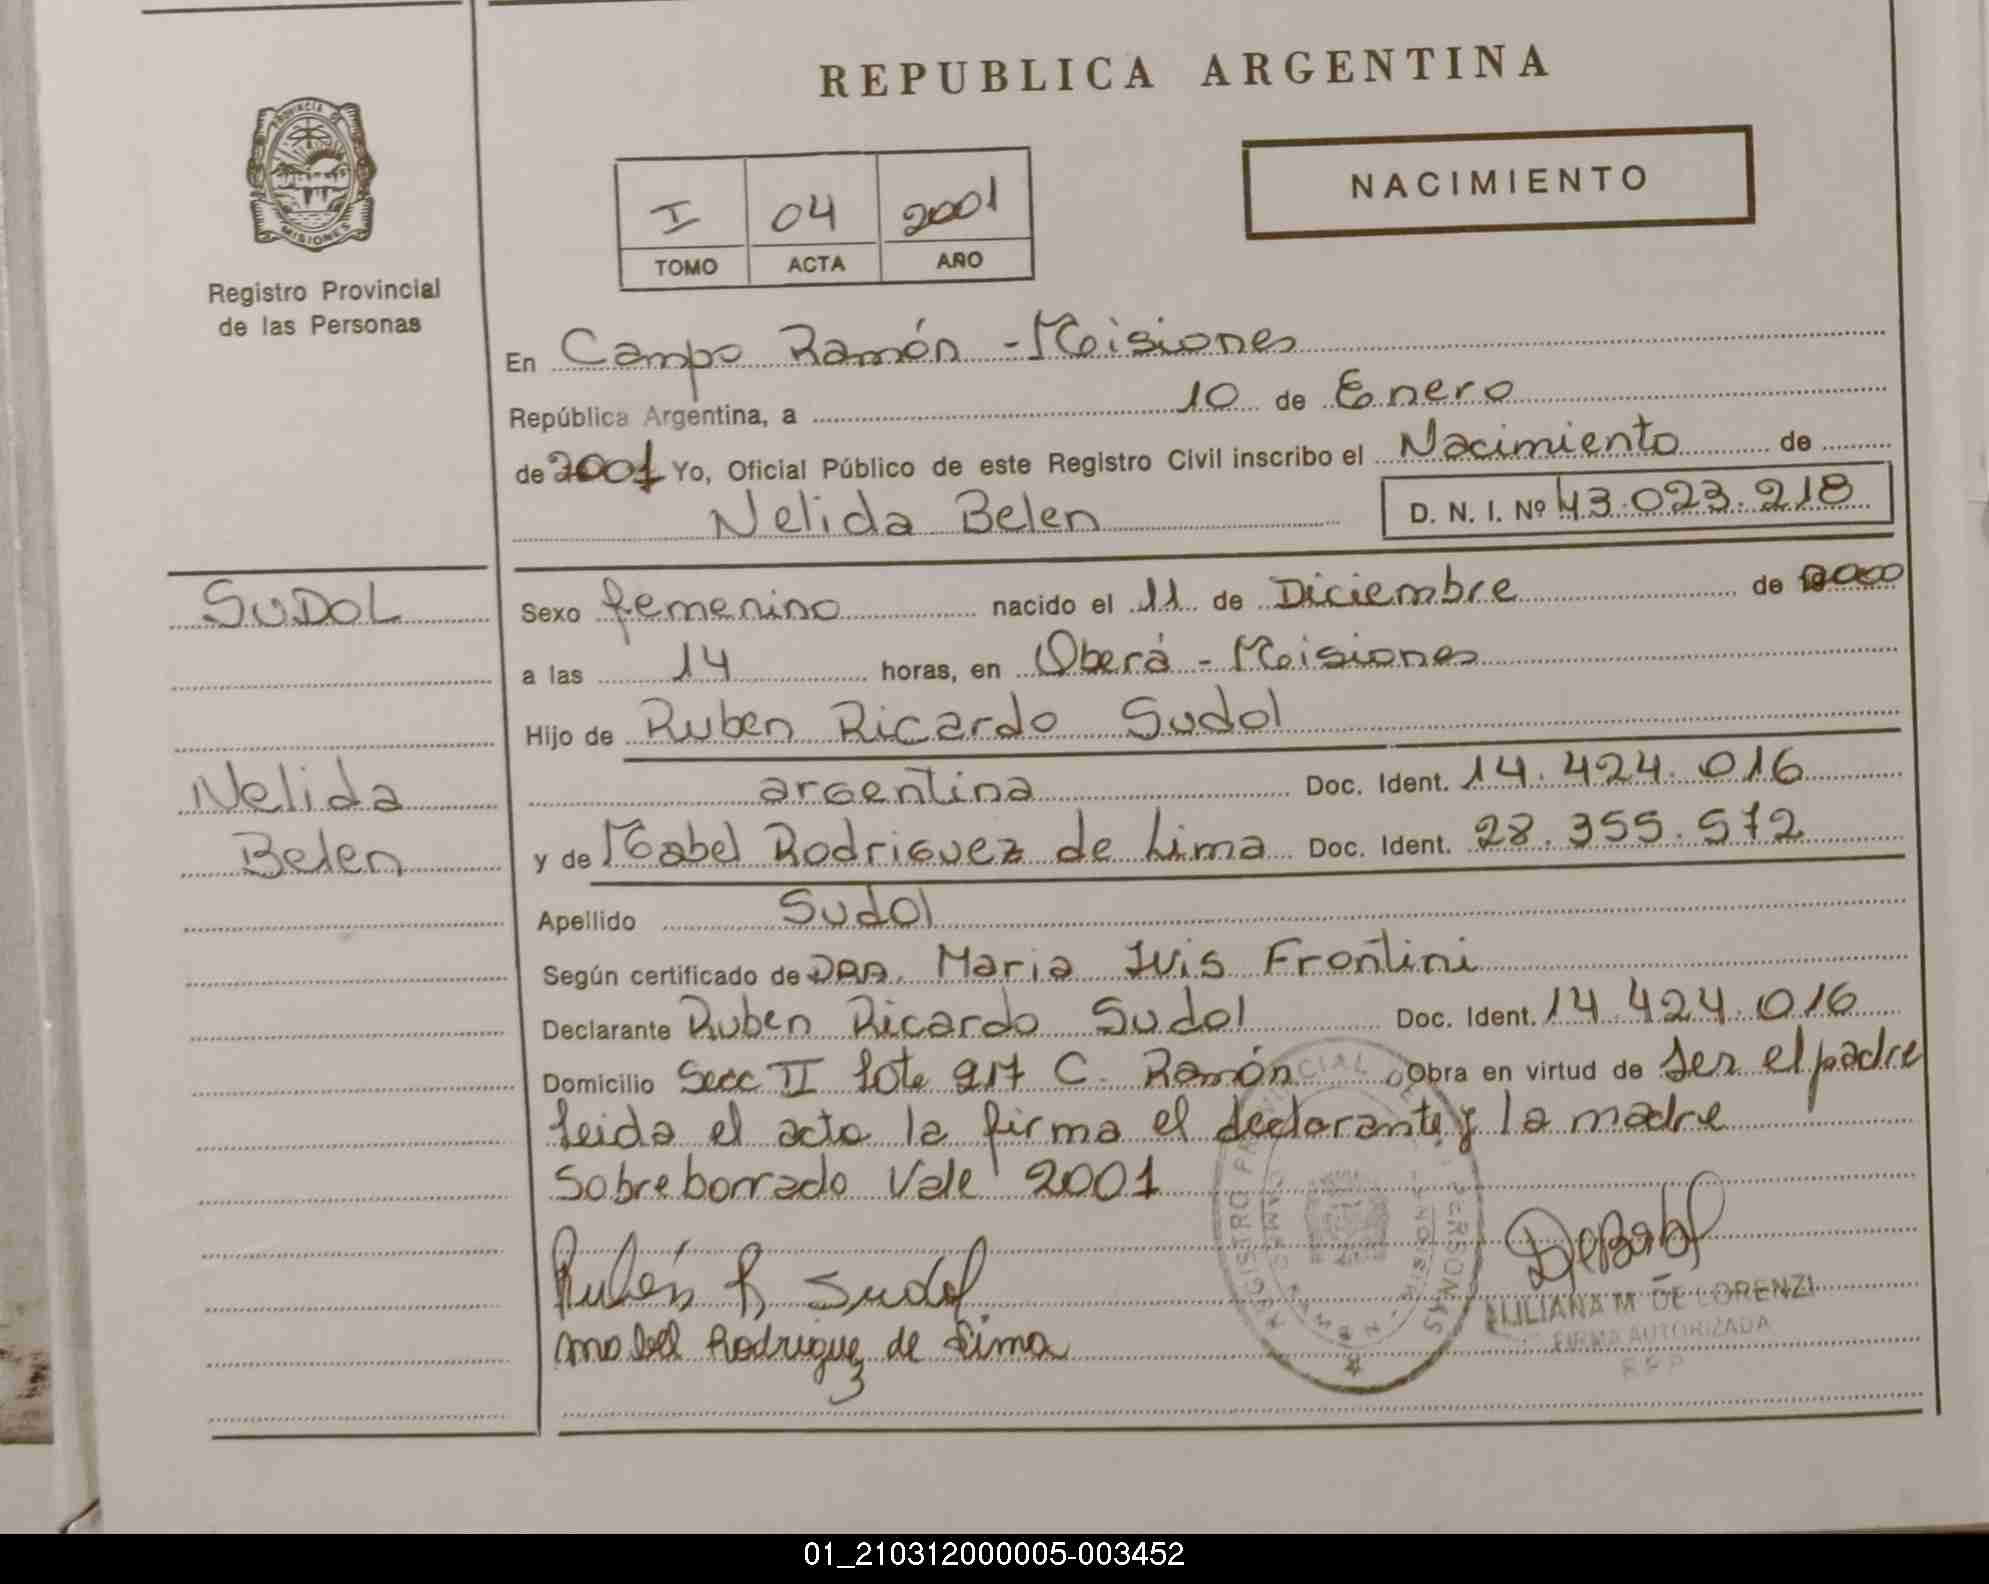 REPUBLICA ARGENTINA
PROVINCIA DE
MISIONES
Registro Provincial
de las Personas
I 04 2001
TOMO ACTA AÑO
NACIMIENTO
En Campo Ramón - Misiones
República Argentina, a 10 de Enero
de 2001 Yo, Oficial Público de este Registro Civil inscribo el Nacimiento de
Nelida Belen D. N. I. Nº 43.023.218
SUDOL
Nelida
Belen
Sexo femenino nacido el 11 de Diciembre de 2000
a las 14 horas, en Oberá - Misiones
Hijo de Ruben Ricardo Sudol
argentina Doc. Ident. 14.424.016
y de Mabel Rodriguez de Lima Doc. Ident. 28.355.572
Apellido Sudol
Según certificado de DRA. Maria Luis Frontini
Declarante Ruben Ricardo Sudol Doc. Ident. 14.424.016
Domicilio Secc II lote 217 C. Ramón Obra en virtud de ser el padre
leida el acta la firma el declarante y la madre
Sobreborrado Vale 2001
Rubén R Sudol
Mabel Rodriguez de Lima
LILIANA M DE LORENZI
FIRMA AUTORIZADA
R P P
01_210312000005-003452